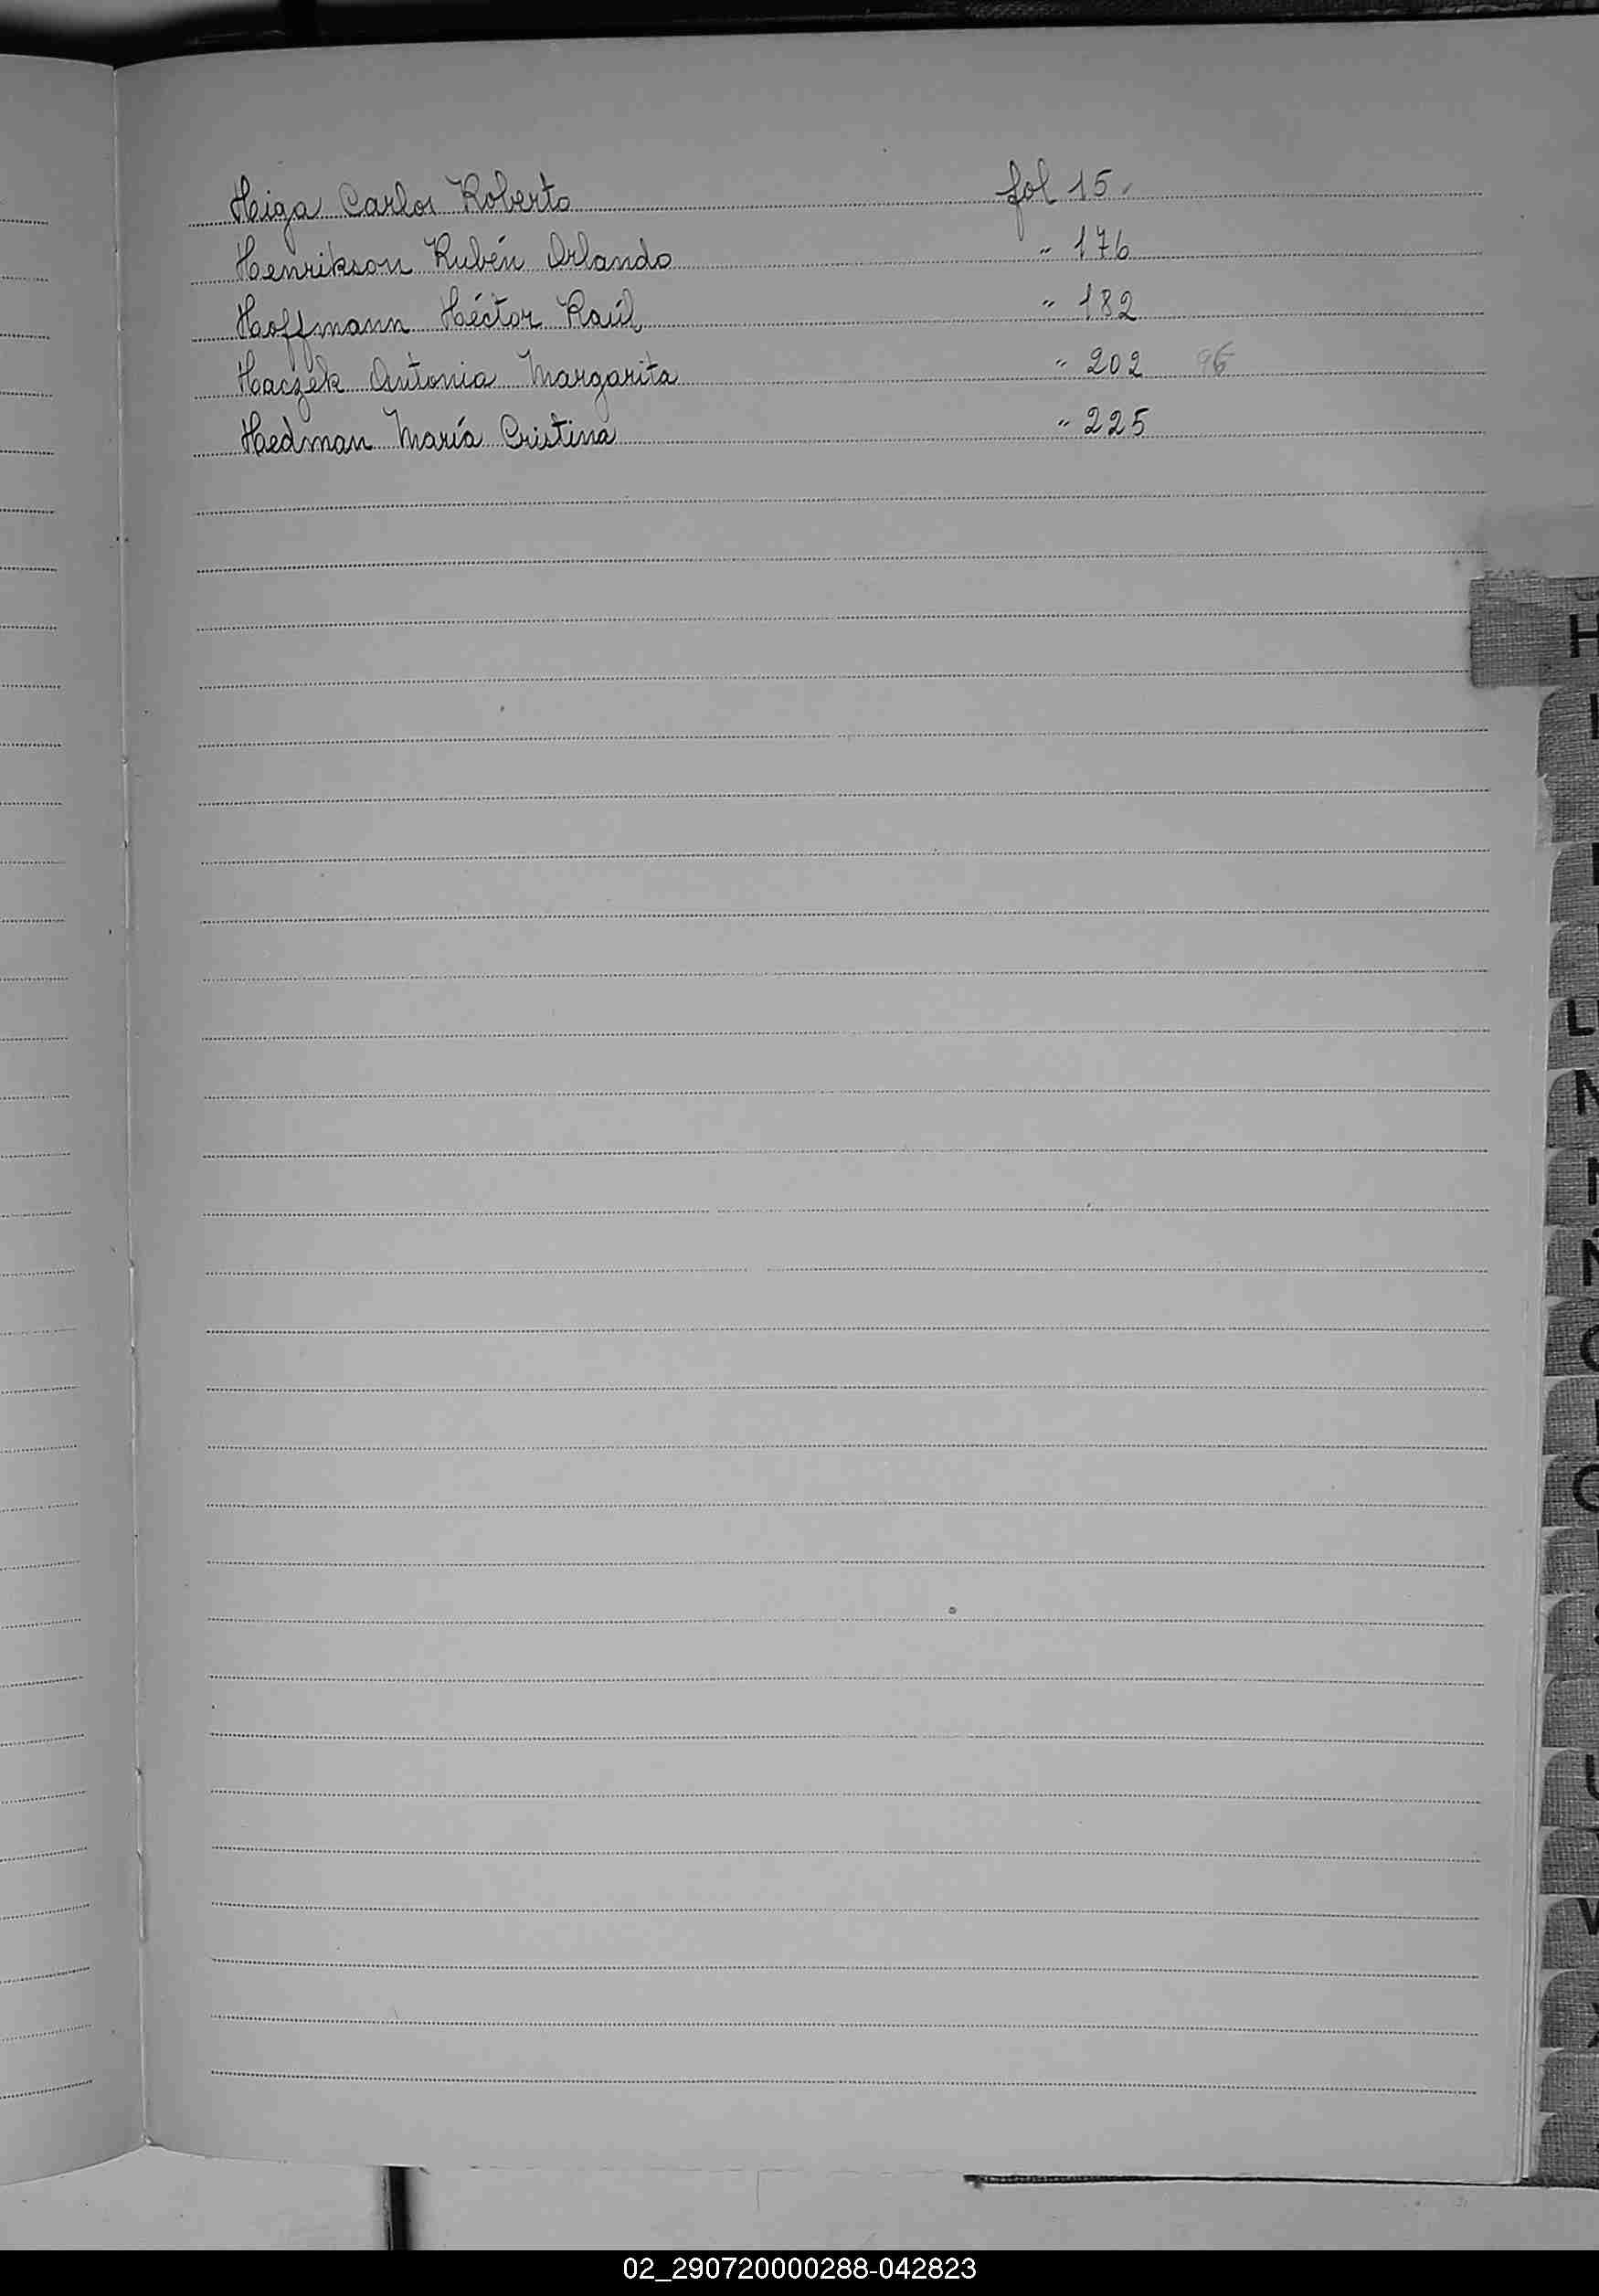 Higa Carlos Roberto fol 15
Henrikson Rubén Orlando " 176
Hoffmann Héctor Raúl " 182
Haczek Antonia Margarita " 202
Hedman María Cristina " 225
H
L
N
U
02_290720000288-042823